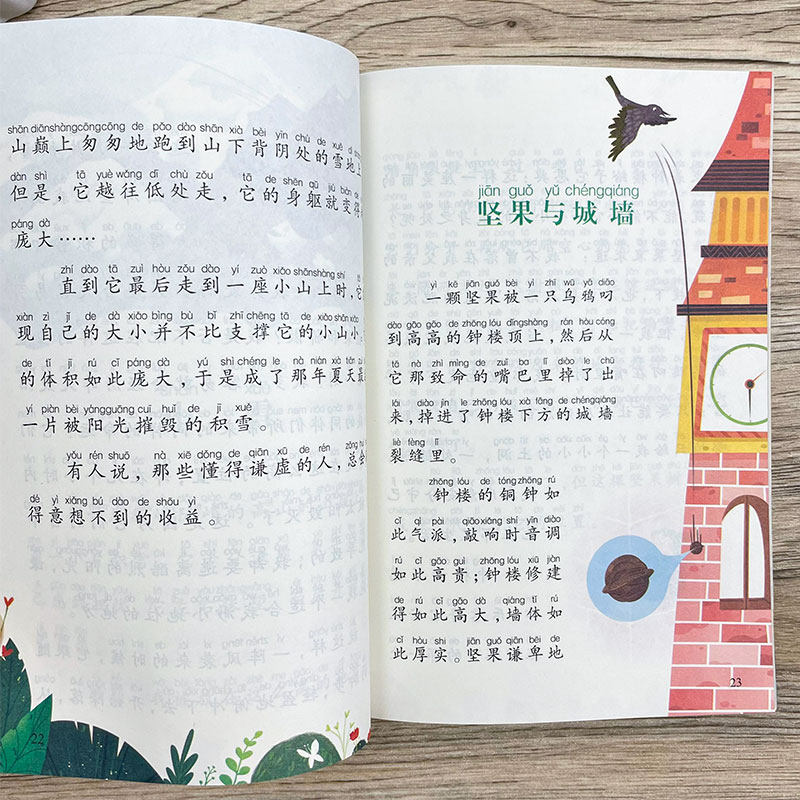 shān diānshàngcōngcōng de pǎo dào shān xià bèi yīn chù de xuě dì
山巅上匆匆地跑到山下背阴处的雪地上
dàn shì tā yuè wǎng dī chù zǒu tā de shēn qū jiù biàn de
但是，它越往低处走，它的身躯就变得
páng dà
庞大……
zhí dào tā zuì hòu zǒu dào yí zuò xiǎo shānshàng shí
直到它最后走到一座小山上时，它
xiàn zì jǐ de dà xiǎo bìng bù bǐ zhī chēng tā de xiǎo shān xiǎo
现自己的大小并不比支撑它的小山小，
de tǐ jī rú cǐ páng dà yú shì chéng le nà nián xià tiān zuì
的体积如此庞大，于是成了那年夏天最
yí piàn bèi yángguāng cuī huǐ de jī xuě
一片被阳光摧毁的积雪。
yǒu rén shuō nà xiē dǒng de qiān xū de rén zǒng huì
有人说，那些懂得谦虚的人，总会
dé yì xiǎng bú dào de shōu yì
得意想不到的收益。
22
jiān guǒ yǔ chéngqiáng
坚果与城墙
yì kē jiān guǒ bèi yì zhī wū yā diāo
一颗坚果被一只乌鸦叼
dào gāo gāo de zhōng lóu dǐngshàng rán hòu cóng
到高高的钟楼顶上，然后从
tā nà zhì mìng de zuǐ ba lǐ diào le chū
它那致命的嘴巴里掉了出
lái diào jìn le zhōng lóu xià fāng de chéngqiáng
来，掉进了钟楼下方的城墙
liè fèng lǐ
裂缝里。
zhōng lóu de tóng zhōng rú
钟楼的铜钟如
cǐ qì pài qiāo xiǎng shí yīn diào
此气派，敲响时音调
rú cǐ gāo guì zhōng lóu xiū jiàn
如此高贵；钟楼修建
de rú cǐ gāo dà qiáng tǐ rú
得如此高大，墙体如
cǐ hòu shi jiān guǒ qiān bēi de
此厚实。坚果谦卑地
23